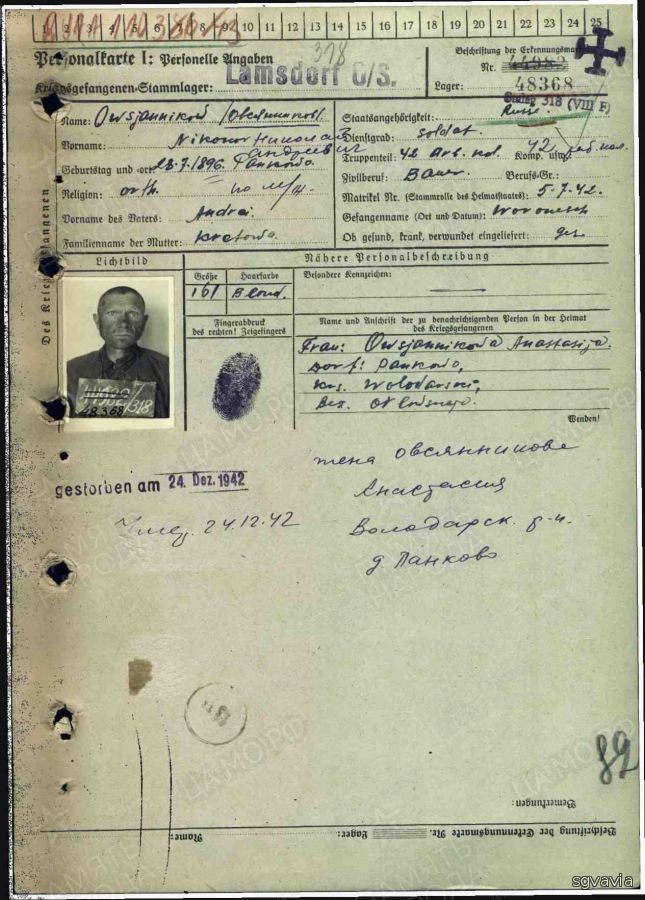 1 2 3 4 5 6 7 8 9 10 11 12 13 14 15 16 17 18 19 20 21 22 23 24 25
Personalkarte I: Personelle Angaben
318
Beschriftung der Erkennungsmarke
Kriegsgefangenen-Stammlager: Lamsdorf O/S.
Nr. 44982
48368
Lager: Stalag 318 (VIII F)
Des Kriegsgefangenen
Name: Owsjannikow /Овсянников/
Staatsangehörigkeit: Russe
Vorname: Nikonor Николай Андреевич
Dienstgrad: soldat.
Truppenteil: 42 Arb. kol. Komp. usw.: 42 раб кол.
Geburtstag und -ort: 28.7.1896. Pankowo.
Zivilberuf: Bauer Berufs-Gr.:
Religion: orth.
Matrikel Nr. (Stammrolle des Heimatstaates) 5.7.42.
Vorname des Vaters: Andrei
Gefangenname (Ort und Datum): Woronesch
Familienname der Mutter: Kretowa
Ob gesund, krank, verwundet eingeliefert: ges
Lichtbild
Nähere Personalbeschreibung
Größe Haarfarbe Besondere Kennzeichen:
161 Blond.
Fingerabdruck
des rechten! Zeigefingers
Name und Anschrift der zu benachrichtigenden Person in der Heimat
des Kriegsgefangenen
Frau: Owsjannikowa Anastasija.
Dorf: Pankowo,
Krs. Wolodarski,
Bez.
Wenden!
44982/318
48368
жена Овсянникова
Анастасия
Володарск. р-н.
д Панково
gestorben am 24. Dez. 1942
24.12.42
89
Bemerkungen:
Name: Lager: Beschriftung der Erkennungsmarke Nr.
ЦАМО РФ
sgvavia